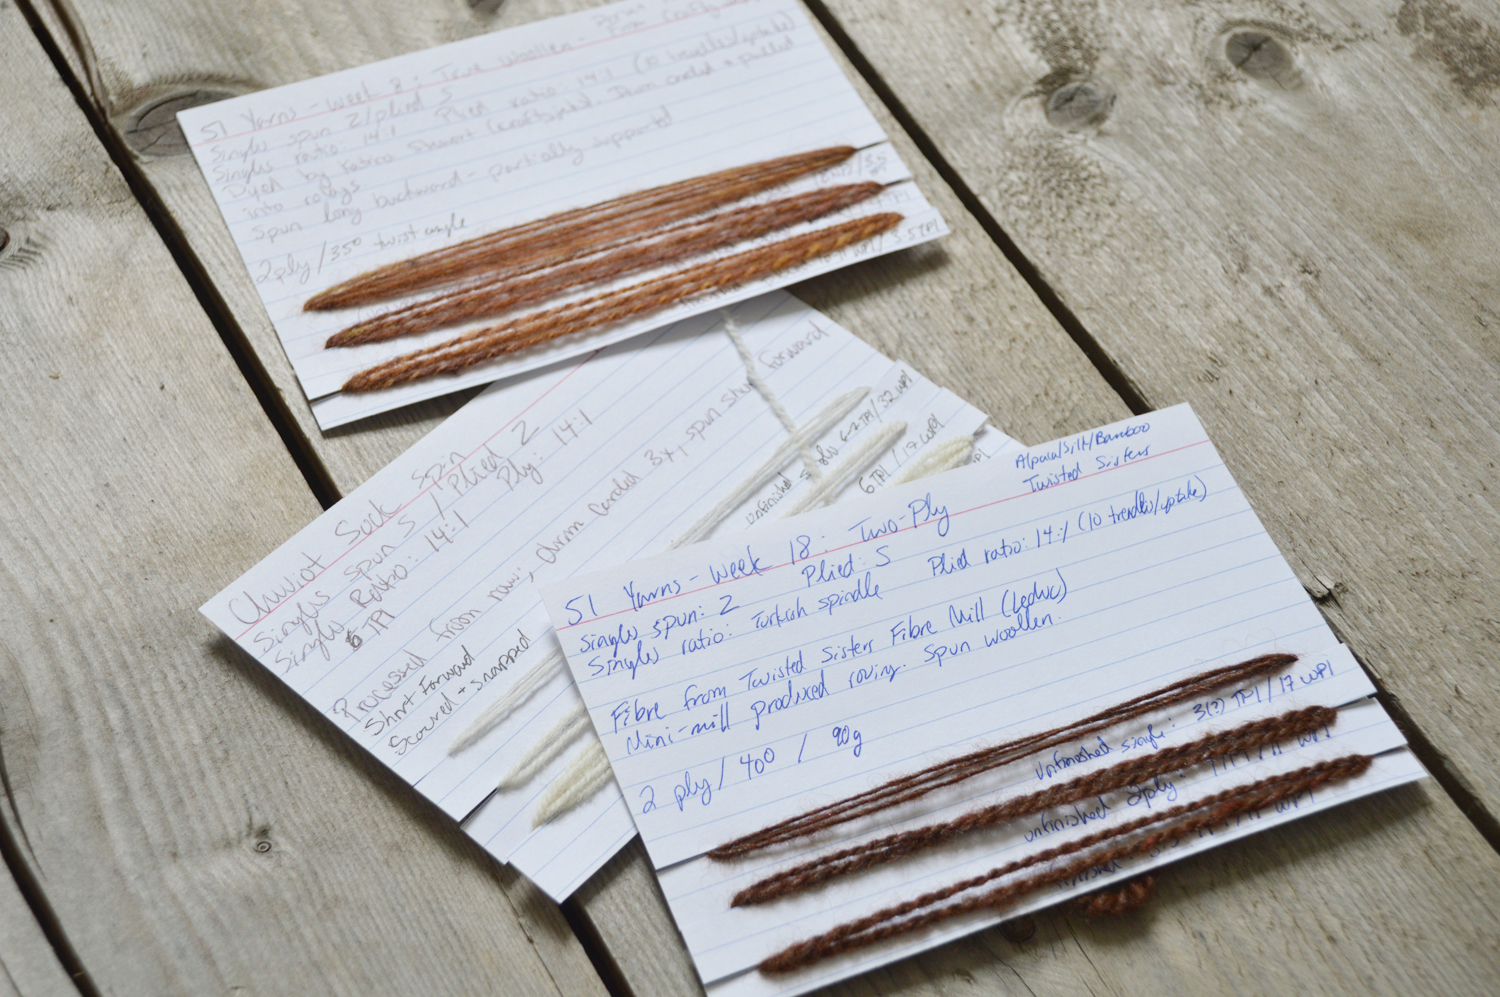 51 Yarns - Week 8: True Woollen -
From Crafty
Singles spun Z/plied S
Singles ratio: 14:1 Plied ratio: 14:1 (10 treadles/uptake)
Dyed by Katrina Stewart (craftyjaks). Drum carded + pulled
into rolags
Spun long backward - partially supported
2 ply / 35° twist angle
5.5 TPI
Cheviot Sock Spin
Singles Spun S / Plied Z
Singles Ratio: 14:1 Ply: 14:1
6 TPI
Processed from raw; drum carded 3x, spun short forward
Short forward
Scoured + snapped
unfinished singles TPI / 32 WPI
6 TPI / 17 WPI
WPI
Alpaca/Silk/Bamboo
Twisted Sisters
51 Yarns - Week 18: Two-Ply
Singles spun: Z Plied: S
Singles ratio: Turkish spindle Plied ratio: 14:1 (10 treadles/uptake)
Fibre from Twisted Sisters Fibre Mill (Leduc)
Mini-mill produced roving. Spun woollen.
2 ply / 40° / 90g
unfinished single: 3(?) TPI / 17 WPI
unfinished 2ply: WPI
WPI